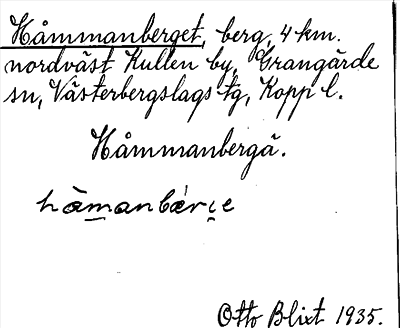 Håmmanberget, berg, 4 km.
nordväst Kullen by, Grangärde
sn, Västerbergslags tg, Kopp l.
Håmmanbergä.
hå̀manbǽrɩe
Otto Blixt 1935.